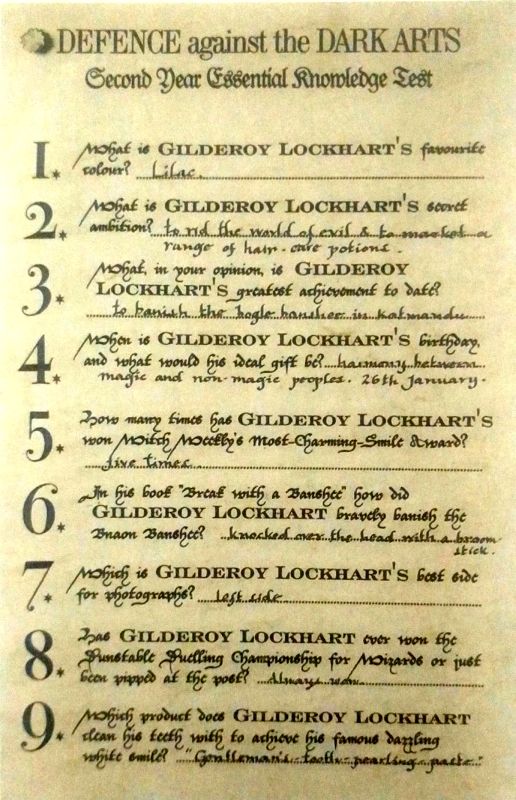 DEFENCE against the DARK ARTS
Second Year Essential Knowledge Test
1. What is GILDEROY LOCKHART'S favourite
colour? Lilac.
2. What is GILDEROY LOCKHART'S secret
ambition? to rid the world of evil & to market a
range of hair-care potions.
3. What, in your opinion, is GILDEROY
LOCKHART'S greatest achievement to date?
to banish the bogle banshee in Katmandu
4. When is GILDEROY LOCKHART'S birthday,
and what would his ideal gift be? harmony between
magic and non-magic peoples. 26th January.
5. How many times has GILDEROY LOCKHART'S
won Witch Weekly's Most-Charming-Smile Award?
five times
6. In his book "Break with a Banshee" how did
GILDEROY LOCKHART bravely banish the
Bnaon Banshee? knocked over the head with a broom
stick.
7. Which is GILDEROY LOCKHART'S best side
for photographs? left side
8. Has GILDEROY LOCKHART ever won the
Dunstable Duelling Championship for Wizards or just
been pipped at the post? Always won
9. Which product does GILDEROY LOCKHART
clean his teeth with to achieve his famous dazzling
white smile? "Gentleman's tooth pearling paste."